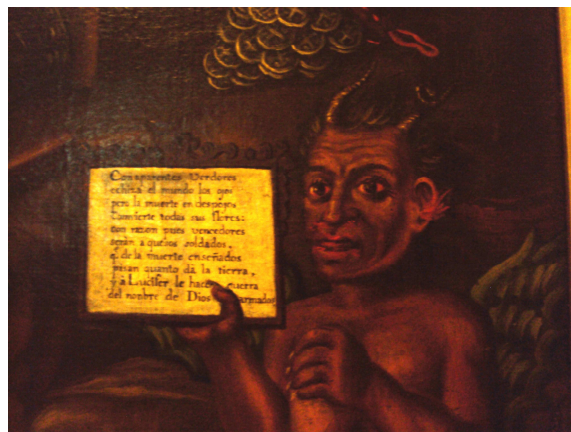 Con aparentes Verdores
echiza el mundo los ojos
pero la muerte en despojos
convierte todas sus flores:
con razon pues vencedores
seran aquesos soldados,
q. de la muerte enseñados
pisan quanto dà la tierra,
y à Lucifer le hacen guerra
del nonbre de Dios armados